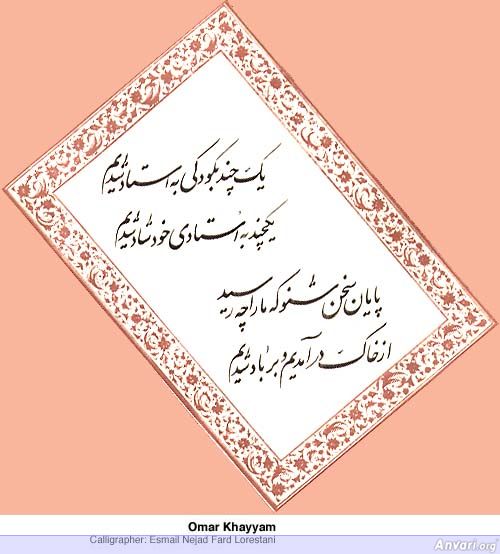 یک چند بکودکی به استاد شدیم
یکچند به استادی خود شاد شدیم
پایان سخن شنو که ما را چه رسید
از خاک در آمدیم و بر باد شدیم
Omar Khayyam
Calligrapher: Esmail Nejad Fard Lorestani
Anvari.org